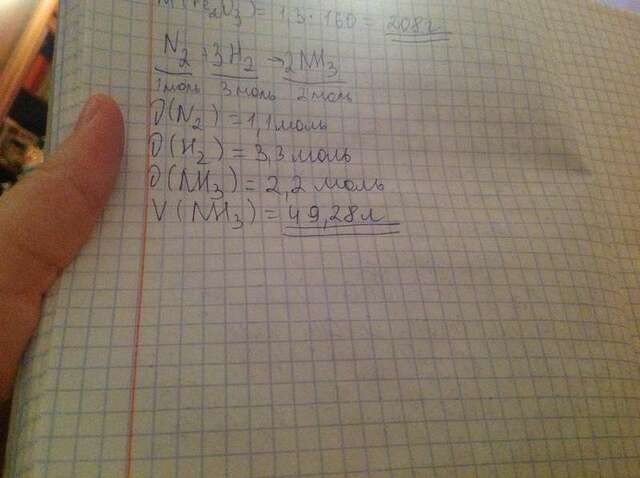 = 1,3 · 160 = 208г
N₂ + 3H₂ → 2NH₃
1моль 3моль 2моль
υ(N₂) = 1,1моль
υ(H₂) = 3,3моль
υ(NH₃) = 2,2моль
V(NH₃) = 49,28л